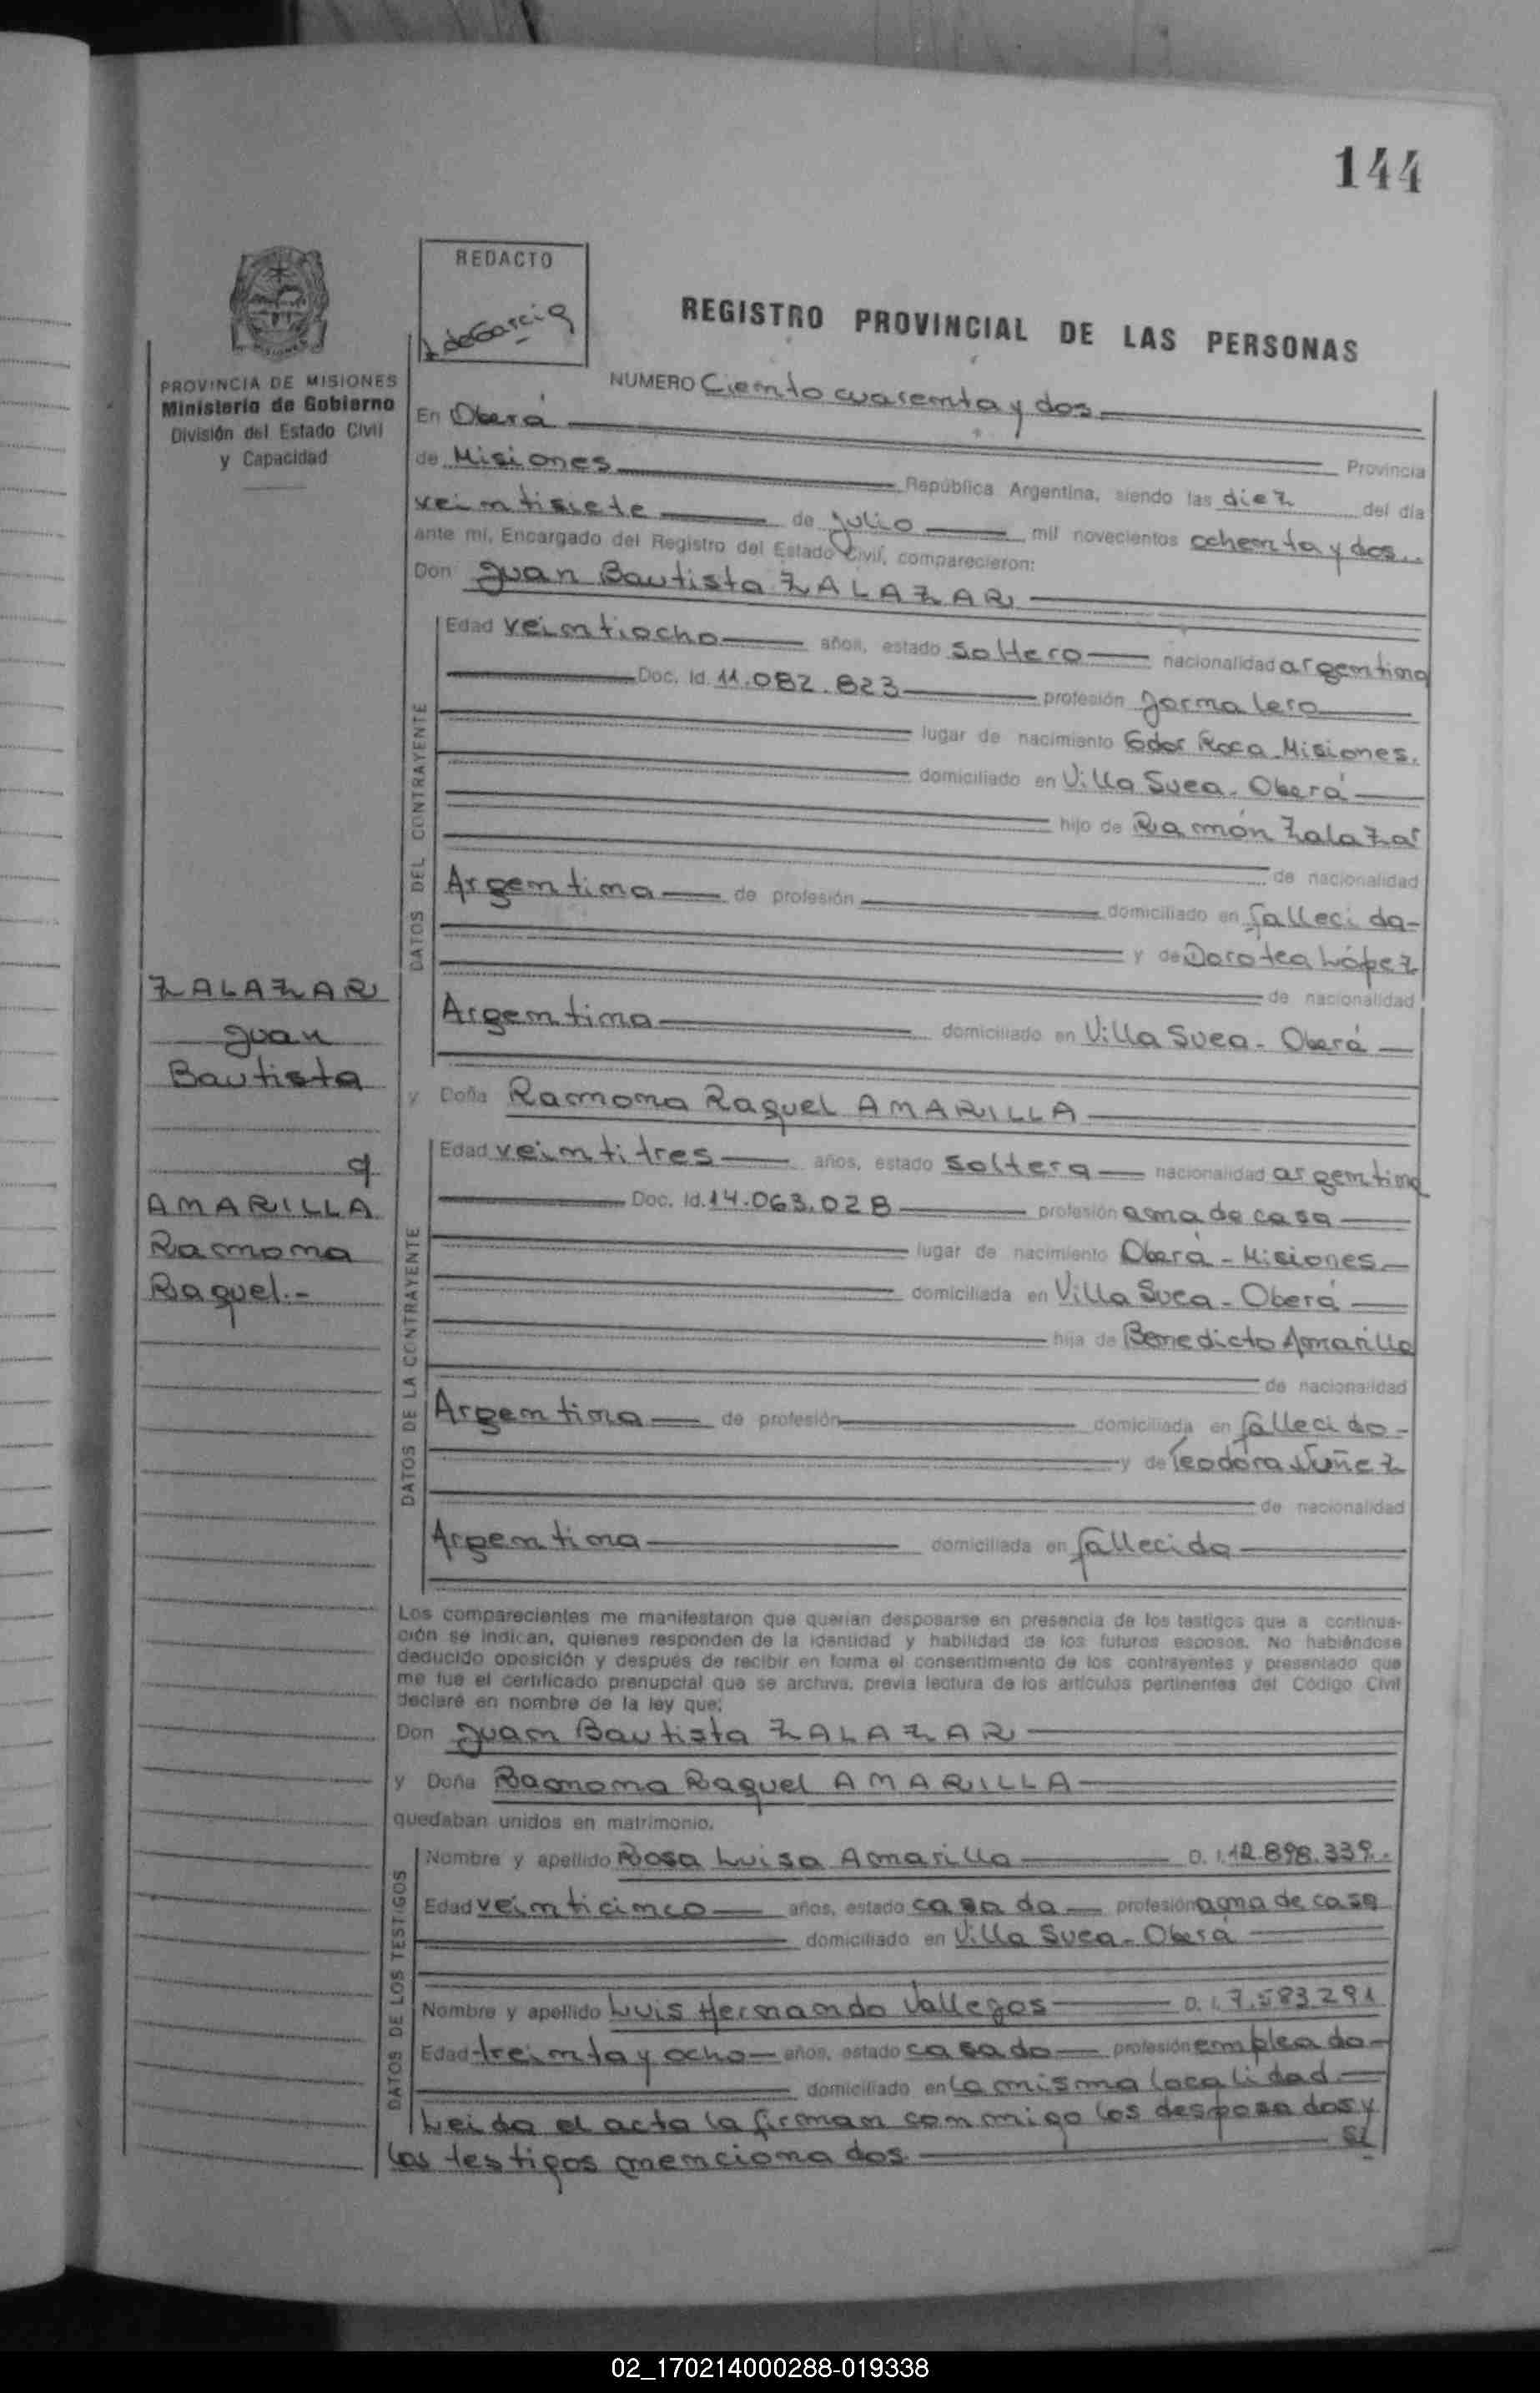 144
REDACTO
deGarcia
REGISTRO PROVINCIAL DE LAS PERSONAS
PROVINCIA DE MISIONES
Ministerio de Gobierno
División del Estado Civil
y Capacidad
NUMERO Ciento cuarenta y dos
En Oberá Provincia
de Misiones República Argentina, siendo las diez del día
veintisiete de Julio mil novecientos ochenta y dos
ante mí, Encargado del Registro del Estado Civil, comparecieron:
Don Juan Bautista ZALAZAR
DATOS DEL CONTRAYENTE
Edad veintiocho años, estado soltero nacionalidad argentina
Doc. Id. 11.082.823 profesión Jornalero
lugar de nacimiento Gdor Roca Misiones.
domiciliado en Villa Svea - Oberá
hijo de Ramón Zalazar
de nacionalidad
Argentina de profesión domiciliado en fallecido -
y de Dorotea López
de nacionalidad
Argentina domiciliado en Villa Svea - Oberá
ZALAZAR
Juan
Bautista
AMARILLA
Ramona
Raquel.-
y Doña Ramona Raquel AMARILLA
DATOS DE LA CONTRAYENTE
Edad veintitres años, estado soltera nacionalidad argentina
Doc. Id. 14.063.028 profesión ama de casa
lugar de nacimiento Oberá - Misiones
domiciliada en Villa Svea - Oberá
hija de Benedicto Amarilla
de nacionalidad
Argentina de profesión domiciliada en fallecido -
y de Teodora Nuñez
de nacionalidad
Argentina domiciliada en fallecida
Los comparecientes me manifestaron que querían desposarse en presencia de los testigos que a continua-
ción se indican, quienes responden de la identidad y habilidad de los futuros esposos. No habiéndose
deducido oposición y después de recibir en forma el consentimiento de los contrayentes y presentado que
me fue el certificado prenupcial que se archiva, previa lectura de los artículos pertinentes del Código Civil
declaré en nombre de la ley que:
Don Juan Bautista ZALAZAR
y Doña Ramona Raquel AMARILLA
quedaban unidos en matrimonio.
DATOS DE LOS TESTIGOS
Nombre y apellido Rosa Luisa Amarilla D. I. 12.898.339.
Edad veinticinco años, estado casada profesión ama de casa
domiciliado en Villa Svea - Oberá
Nombre y apellido Luis Hernando Vallegos D. I. 7.583291
Edad treinta y ocho años, estado casado profesión empleado
domiciliado en la misma localidad
Leida el acta la firman conmigo los desposados y
los testigos mencionados
02_170214000288-019338